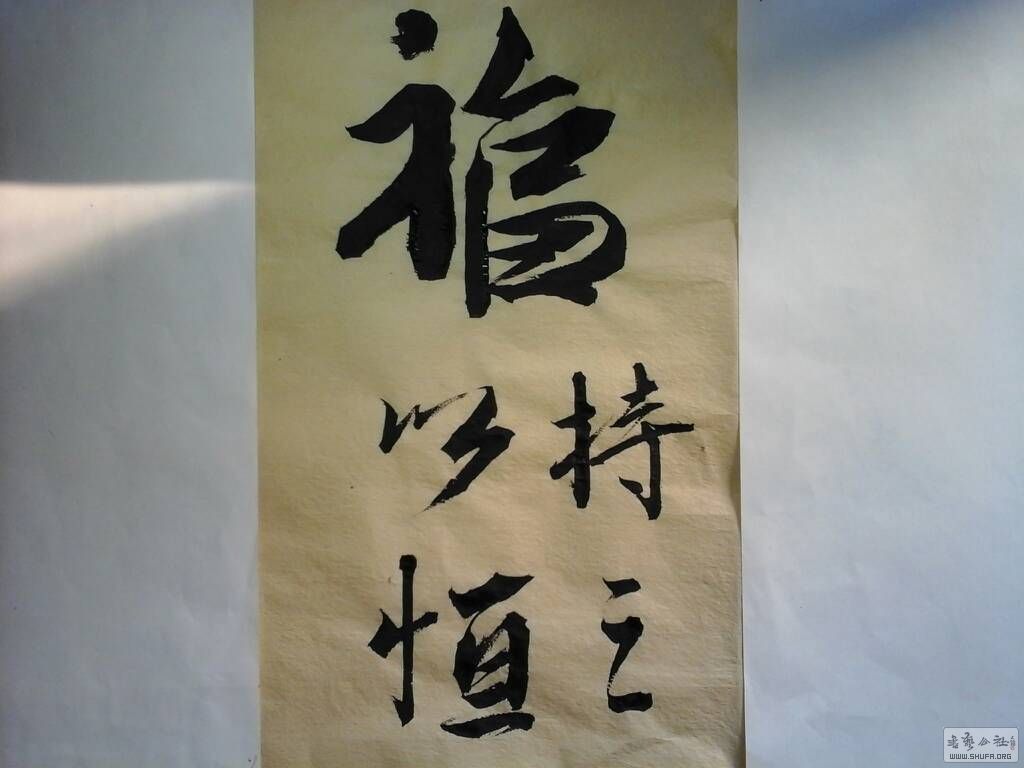 福
持之
以恒
書藝公社
WWW.SHUFA.ORG